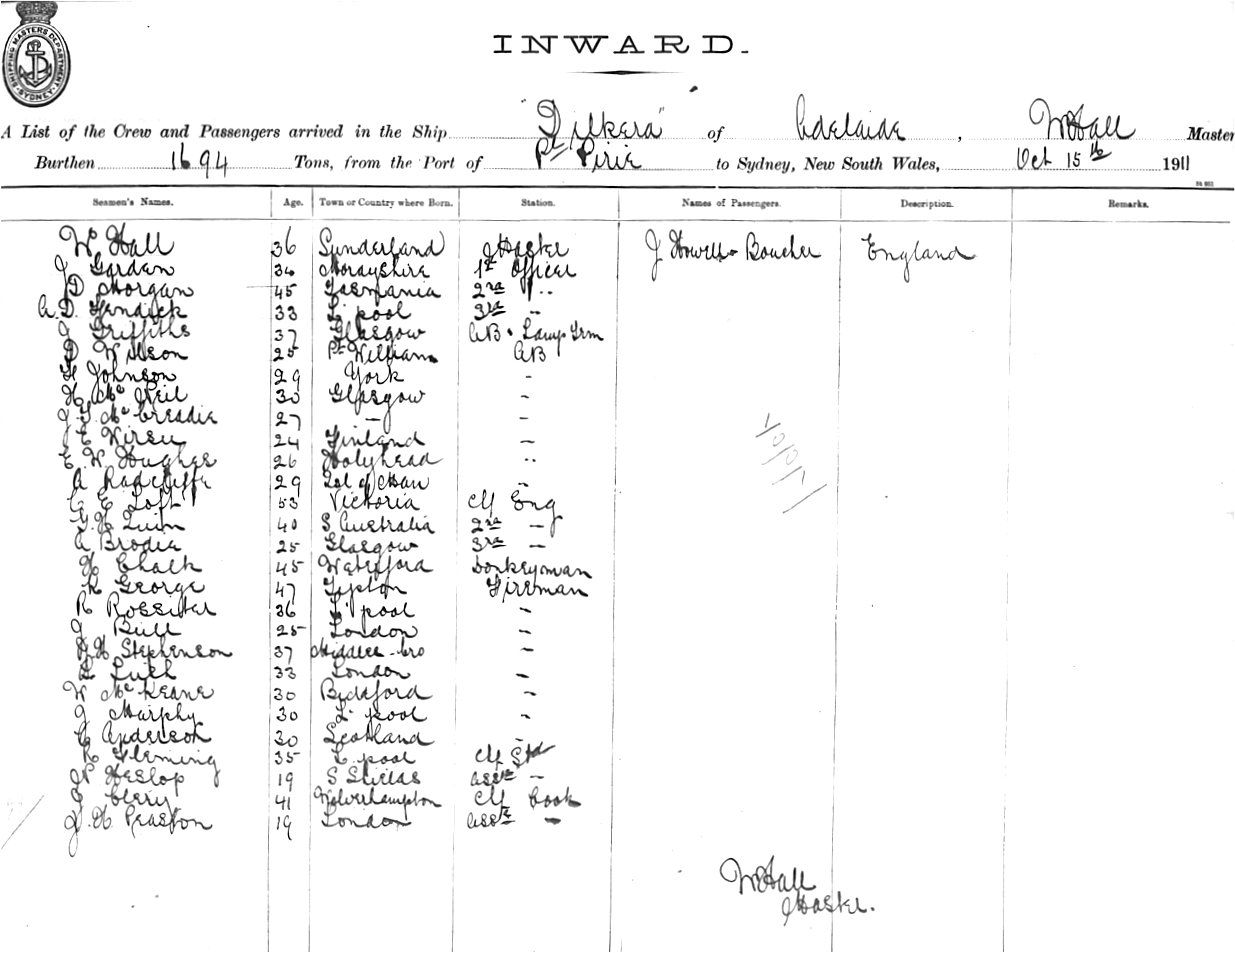 SHIPPING MASTERS DEPARTMENT SYDNEY
INWARD.
A List of the Crew and Passengers arrived in the Ship "Dilkera" of Adelaide, W Hall Master
Burthen 1694 Tons, from the Port of Pt Pirie to Sydney, New South Wales, Oct 15th 1911
Seamen's Names. Age. Town or Country where Born. Station. Names of Passengers. Description. Remarks.
W Hall 36 Sunderland Master J Howells Boucher England
J Gordon 36 Morayshire 1st Officer
D Morgan 45 Tasmania 2nd "
A. D. 33 L'pool 3rd "
J Griffiths 37 Glasgow AB & Lamp Trm
D Wilson 25 Pt William AB
H Johnson 29 York "
H McNeil 30 Glasgow "
J. T. McCreadie 27 — "
J E Wiren 24 Finland "
E W Hughes 26 Holyhead "
A Radcliffe 29 Isl of Man "
C E Loft 53 Victoria Cf Eng
T. H. Quin 40 S Australia 2nd —
A Brodie 25 Glasgow 3rd —
H Chalk 45 Waterford Donkeyman
K George 47 Tipton Fireman
R Rossiter 36 L'pool "
J Bull 25 London "
H Stephenson 37 Middles-bro "
London 33 "
W McKeane 30 Bideford "
J Murphy 30 L'pool "
C Anderson 30 Scotland "
R Fleming 35 L'pool Cf Std
W Heslop 19 S Shields Asst —
Cherry 41 Wolverhampton Cf Cook
J. H. Peaston 19 London Asst —
W Hall
Master.